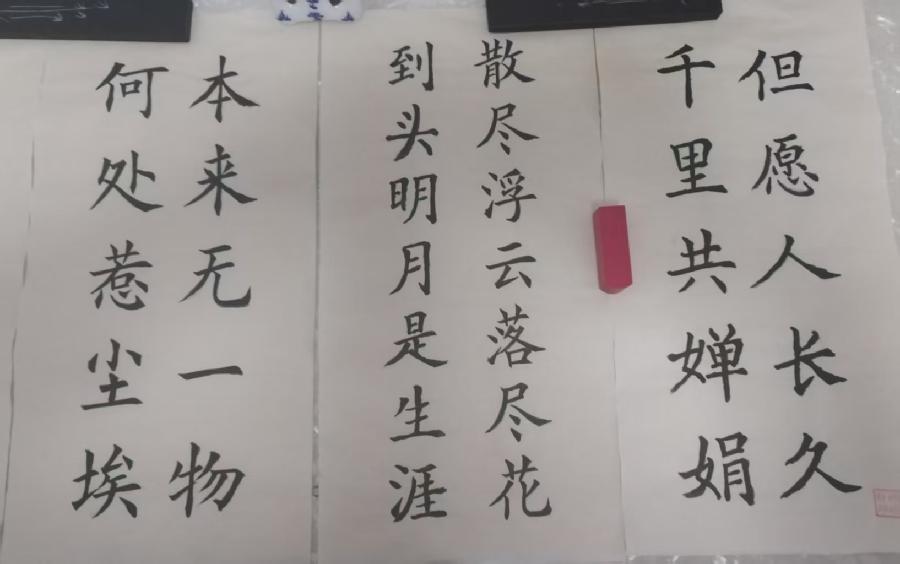 但愿人长久
千里共婵娟
散尽浮云落尽花
到头明月是生涯
本来无一物
何处惹尘埃